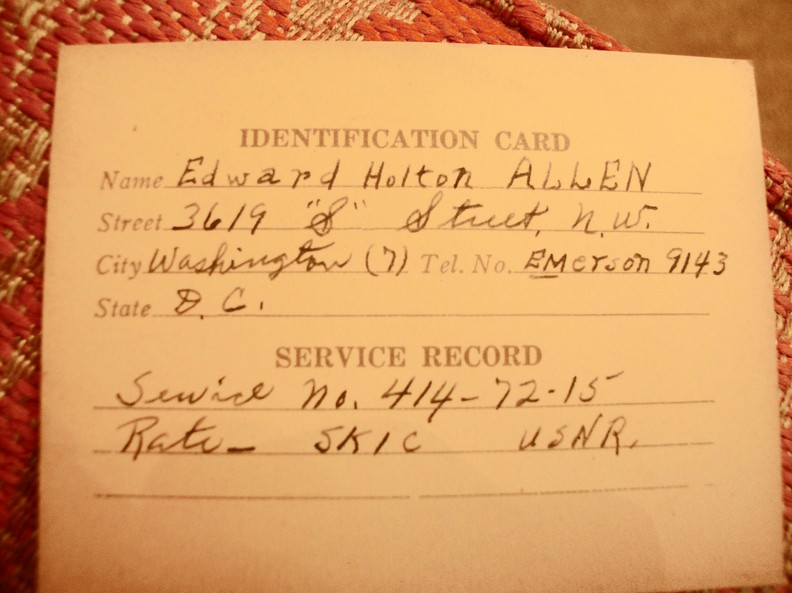 IDENTIFICATION CARD
Name Edward Holton ALLEN
Street 3619 "S" Street, N.W.
City Washington (7) Tel. No. EMerson 9143
State D.C.
SERVICE RECORD
Service No. 414-72-15
Rate- SK1C USNR.